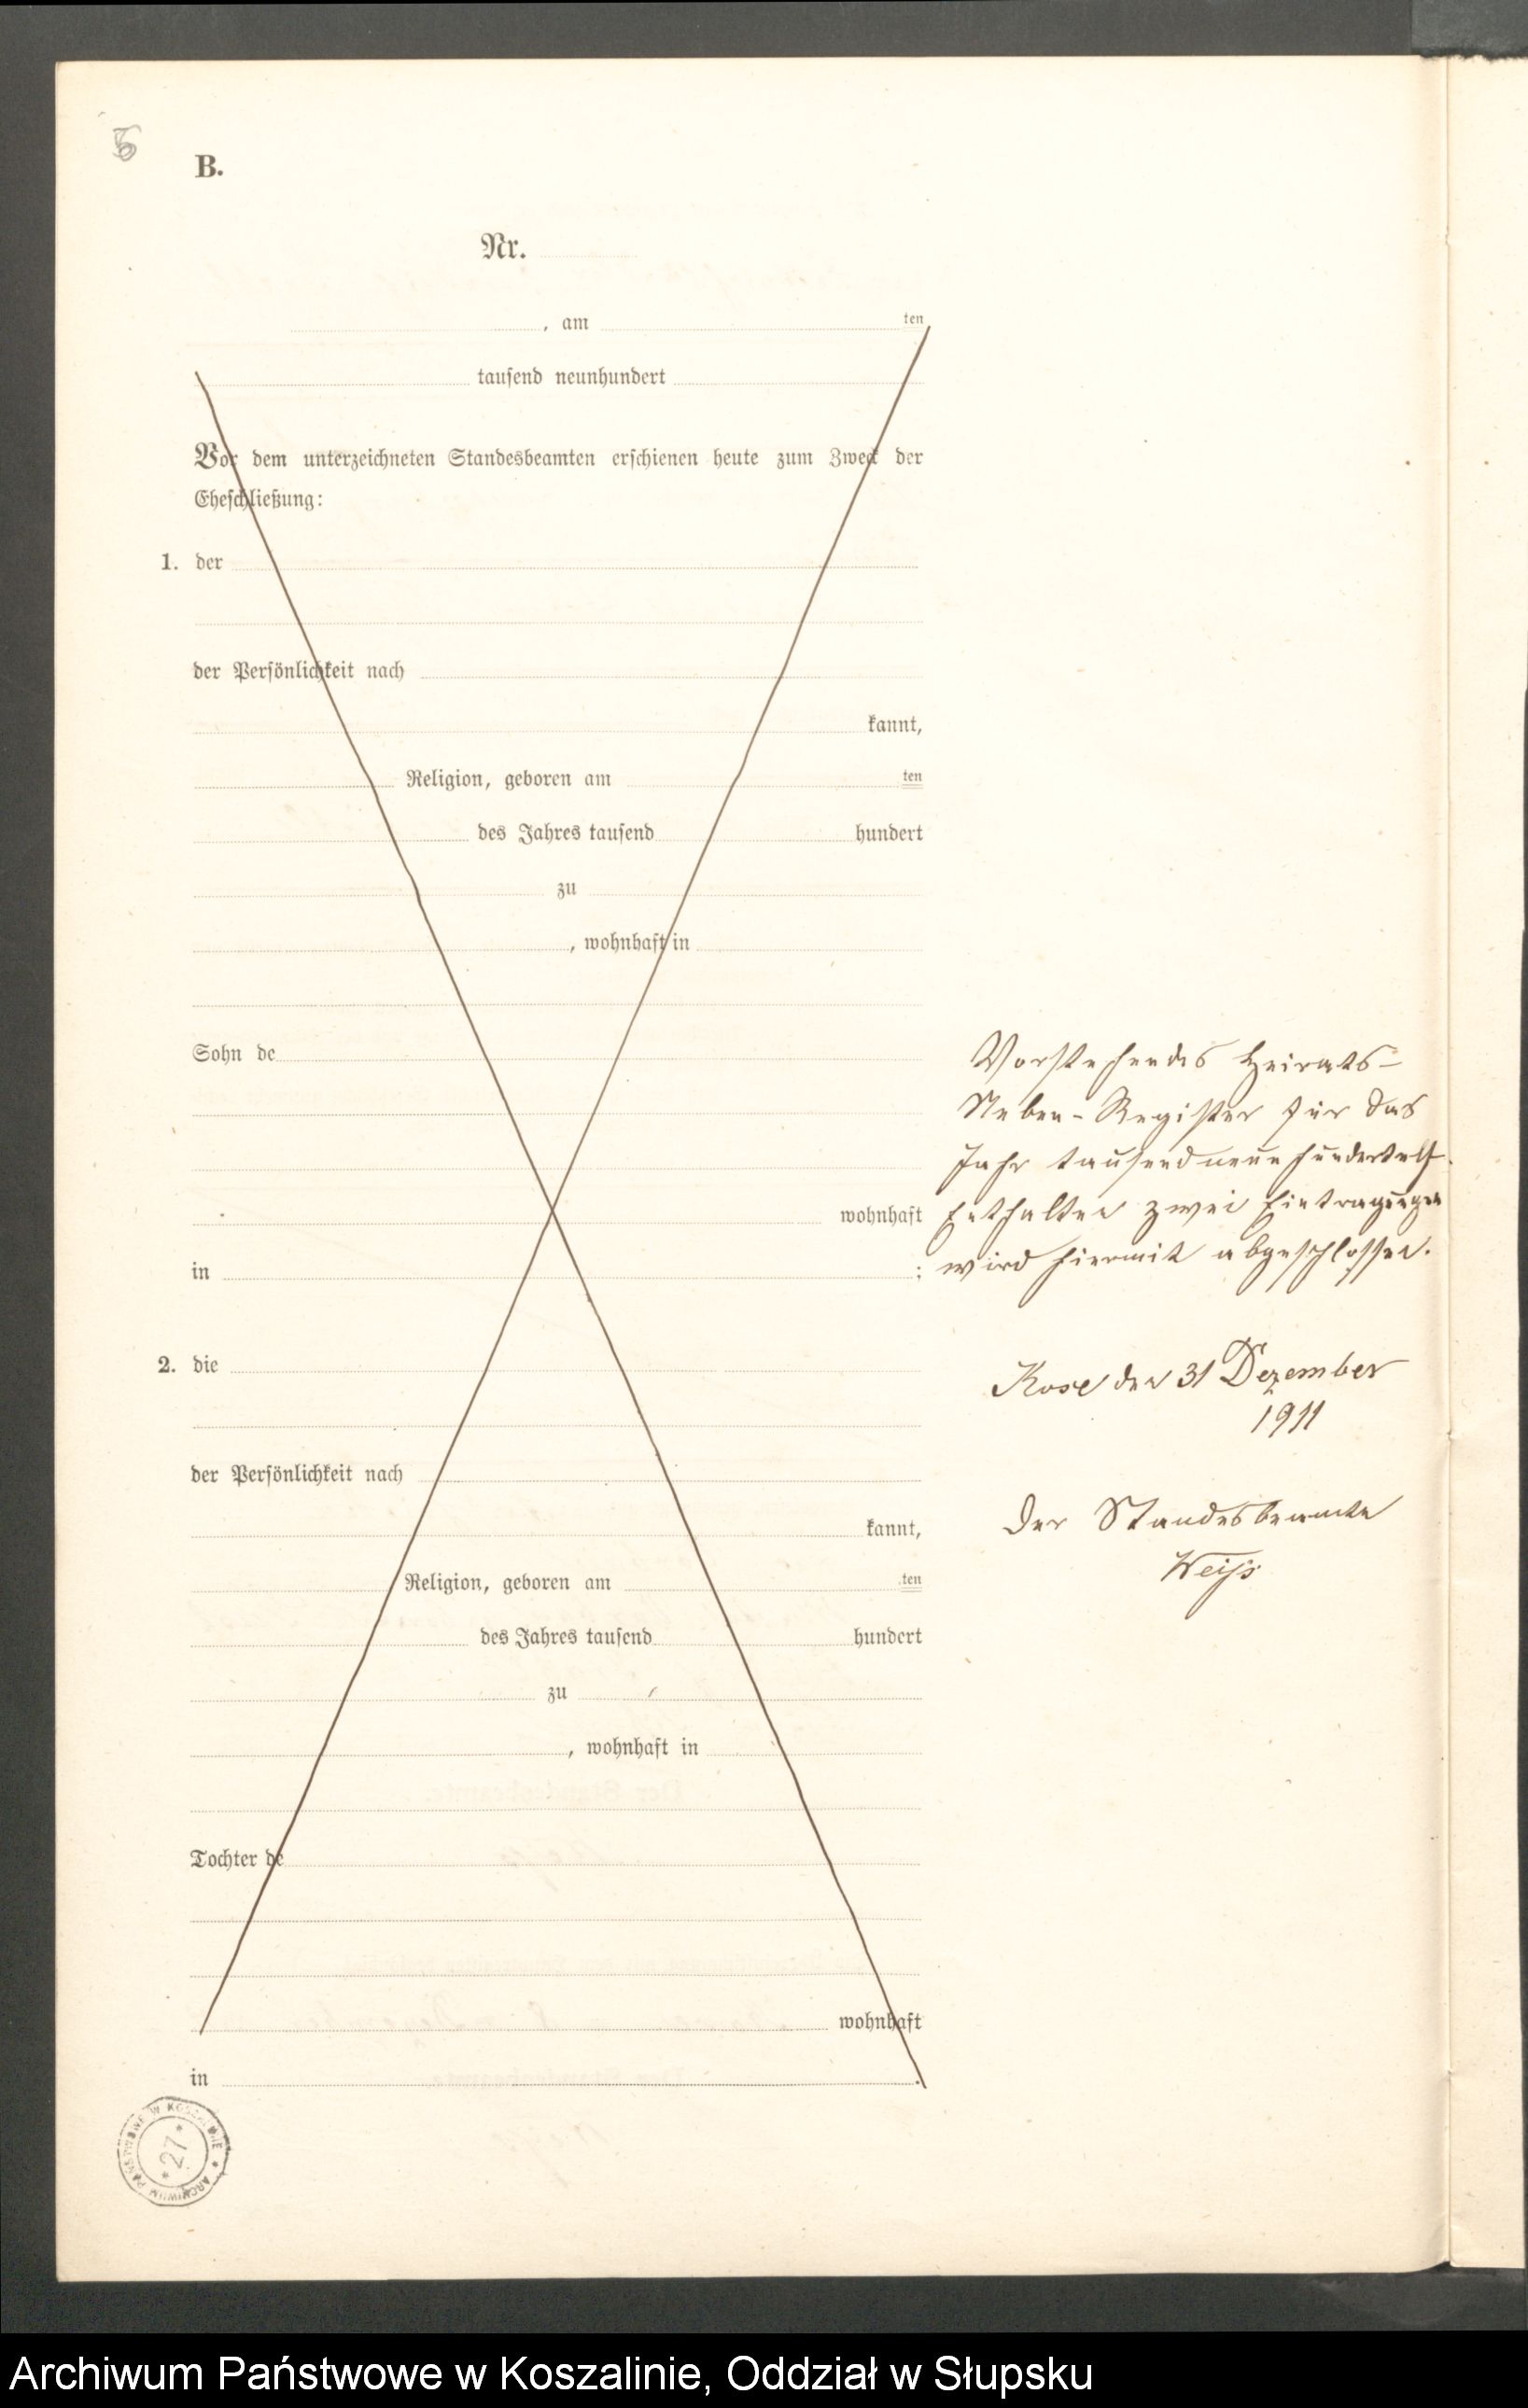 B.
Nr.
, am ten
tausend neunhundert
Vor dem unterzeichneten Standesbeamten erschienen heute zum Zweck der
Eheschließung:
1. der
der Persönlichkeit nach
kannt,
Religion, geboren am ten
des Jahres tausend hundert
zu
, wohnhaft in
Sohn de
wohnhaft
in ;
2. die
der Persönlichkeit nach
kannt,
Religion, geboren am ten
des Jahres tausend hundert
zu
, wohnhaft in
Tochter de
wohnhaft
in .
Vorstehendes Heirats-
Neben-Register für das
Jahr tausendneunhundertelf
Enthalten zwei Eintragungen
wird hiermit abgeschlossen.
Kose den 31 Dezember
1911
Der Standesbeamte
Weiß
ARCHIWUM PAŃSTWOWE W KOSZALINIE
* 27 *
Archiwum Państwowe w Koszalinie, Oddział w Słupsku